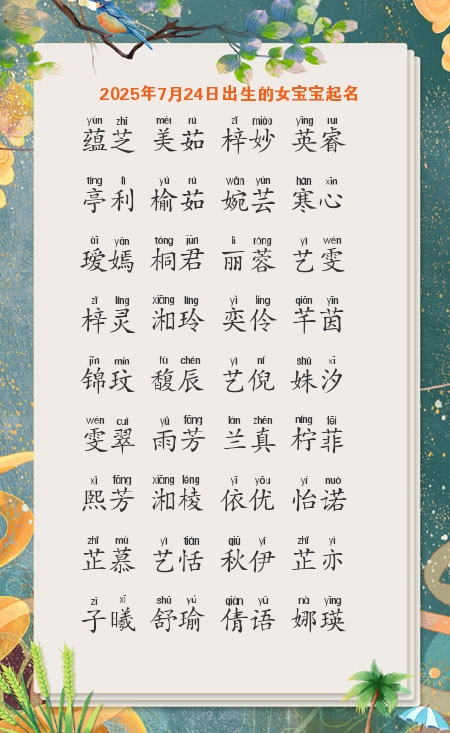 2025年7月24日出生的女宝宝起名
yùn zhī měi rú zǐ miào yīng ruì
蕴芝 美茹 梓妙 英睿
tíng lì yú rú wǎn yún hán xīn
亭利 榆茹 婉芸 寒心
ài yān tóng jūn lì róng yì wén
瑷嫣 桐君 丽蓉 艺雯
zǐ líng xiāng líng yì líng qiān yīn
梓灵 湘玲 奕伶 芊茵
jǐn mín fù chén yì ní shū xī
锦玟 馥辰 艺倪 姝汐
wén cuì yǔ fāng lán zhēn níng fēi
雯翠 雨芳 兰真 柠菲
xī fāng xiāng léng yī yōu yí nuò
熙芳 湘棱 依优 怡诺
zhǐ mù yì tián qiū yī zhǐ yì
芷慕 艺恬 秋伊 芷亦
zǐ xī shū yú qiàn yǔ nà yīng
子曦 舒瑜 倩语 娜瑛